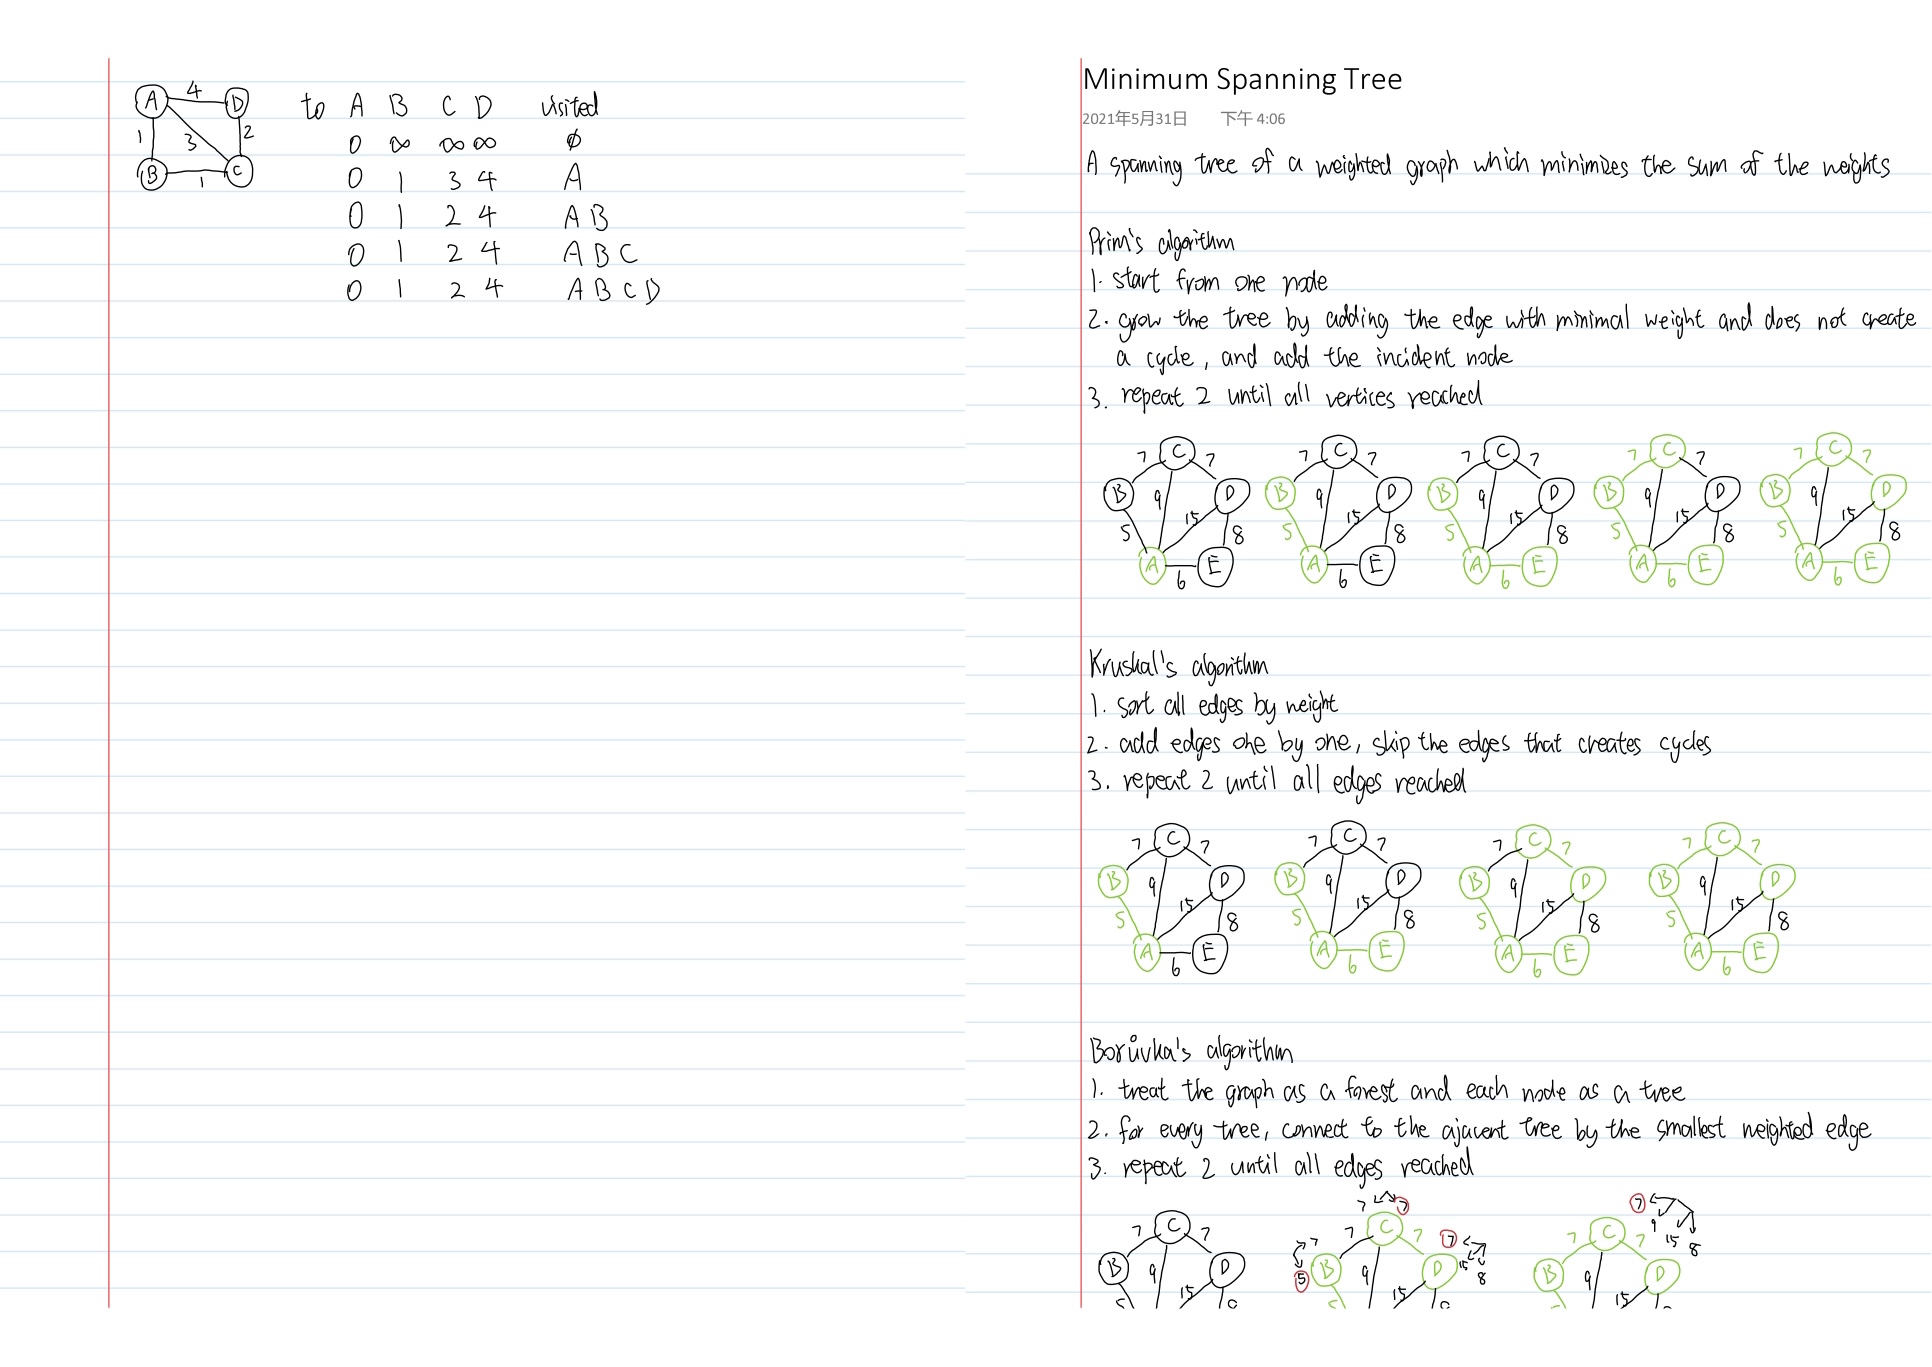 A 4 D
1 3 2
B 1 C
to A B C D visited
0 ∞ ∞ ∞ ϕ
0 1 3 4 A
0 1 2 4 A B
0 1 2 4 A B C
0 1 2 4 A B C D
Minimum Spanning Tree
2021年5月31日 下午 4:06
A spanning tree of a weighted graph which minimizes the sum of the weights
Prim's algorithm
1. start from one node
2. grow the tree by adding the edge with minimal weight and does not create
a cycle, and add the incident node
3. repeat 2 until all vertices reached
7 C 7 7 C 7 7 C 7 7 C 7 7 C 7
B 9 D B 9 D B 9 D B 9 D B 9 D
5 15 8 5 15 8 5 15 8 5 15 8 5 15 8
A 6 E A 6 E A 6 E A 6 E A 6 E
Kruskal's algorithm
1. sort all edges by weight
2. add edges one by one, skip the edges that creates cycles
3. repeat 2 until all edges reached
7 C 7 7 C 7 7 C 7 7 C 7
B 9 D B 9 D B 9 D B 9 D
5 15 8 5 15 8 5 15 8 5 15 8
A 6 E A 6 E A 6 E A 6 E
Borůvka's algorithm
1. treat the graph as a forest and each node as a tree
2. for every tree, connect to the ajacent tree by the smallest weighted edge
3. repeat 2 until all edges reached
7 7 7 9 15 8
7 C 7 7 C 7 7 C 7
7 7 15 8
B 9 D 5 B 9 D B 9 D
15 15 15